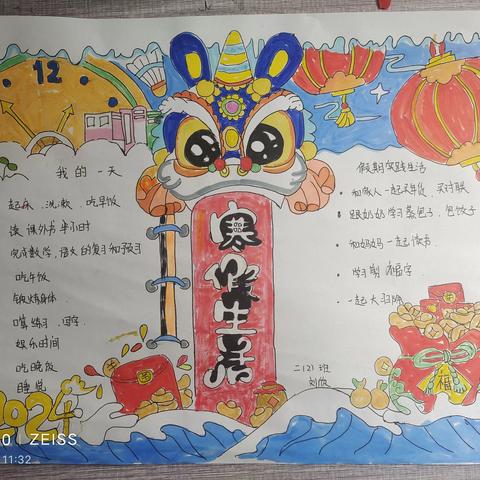 12
我的一天
起床、洗漱、吃早饭
读课外书半小时
完成数学、语文的复习和预习
吃午饭
锻炼身体
口算练习、写字
娱乐时间
吃晚饭
睡觉
2024
寒假生活
假期实践生活
和家人一起买年货、买对联
跟奶奶学习蒸包子、包饺子
和妈妈一起读书
学习剪福字
一起大扫除
二(2)班
福
0 | ZEISS
11:32